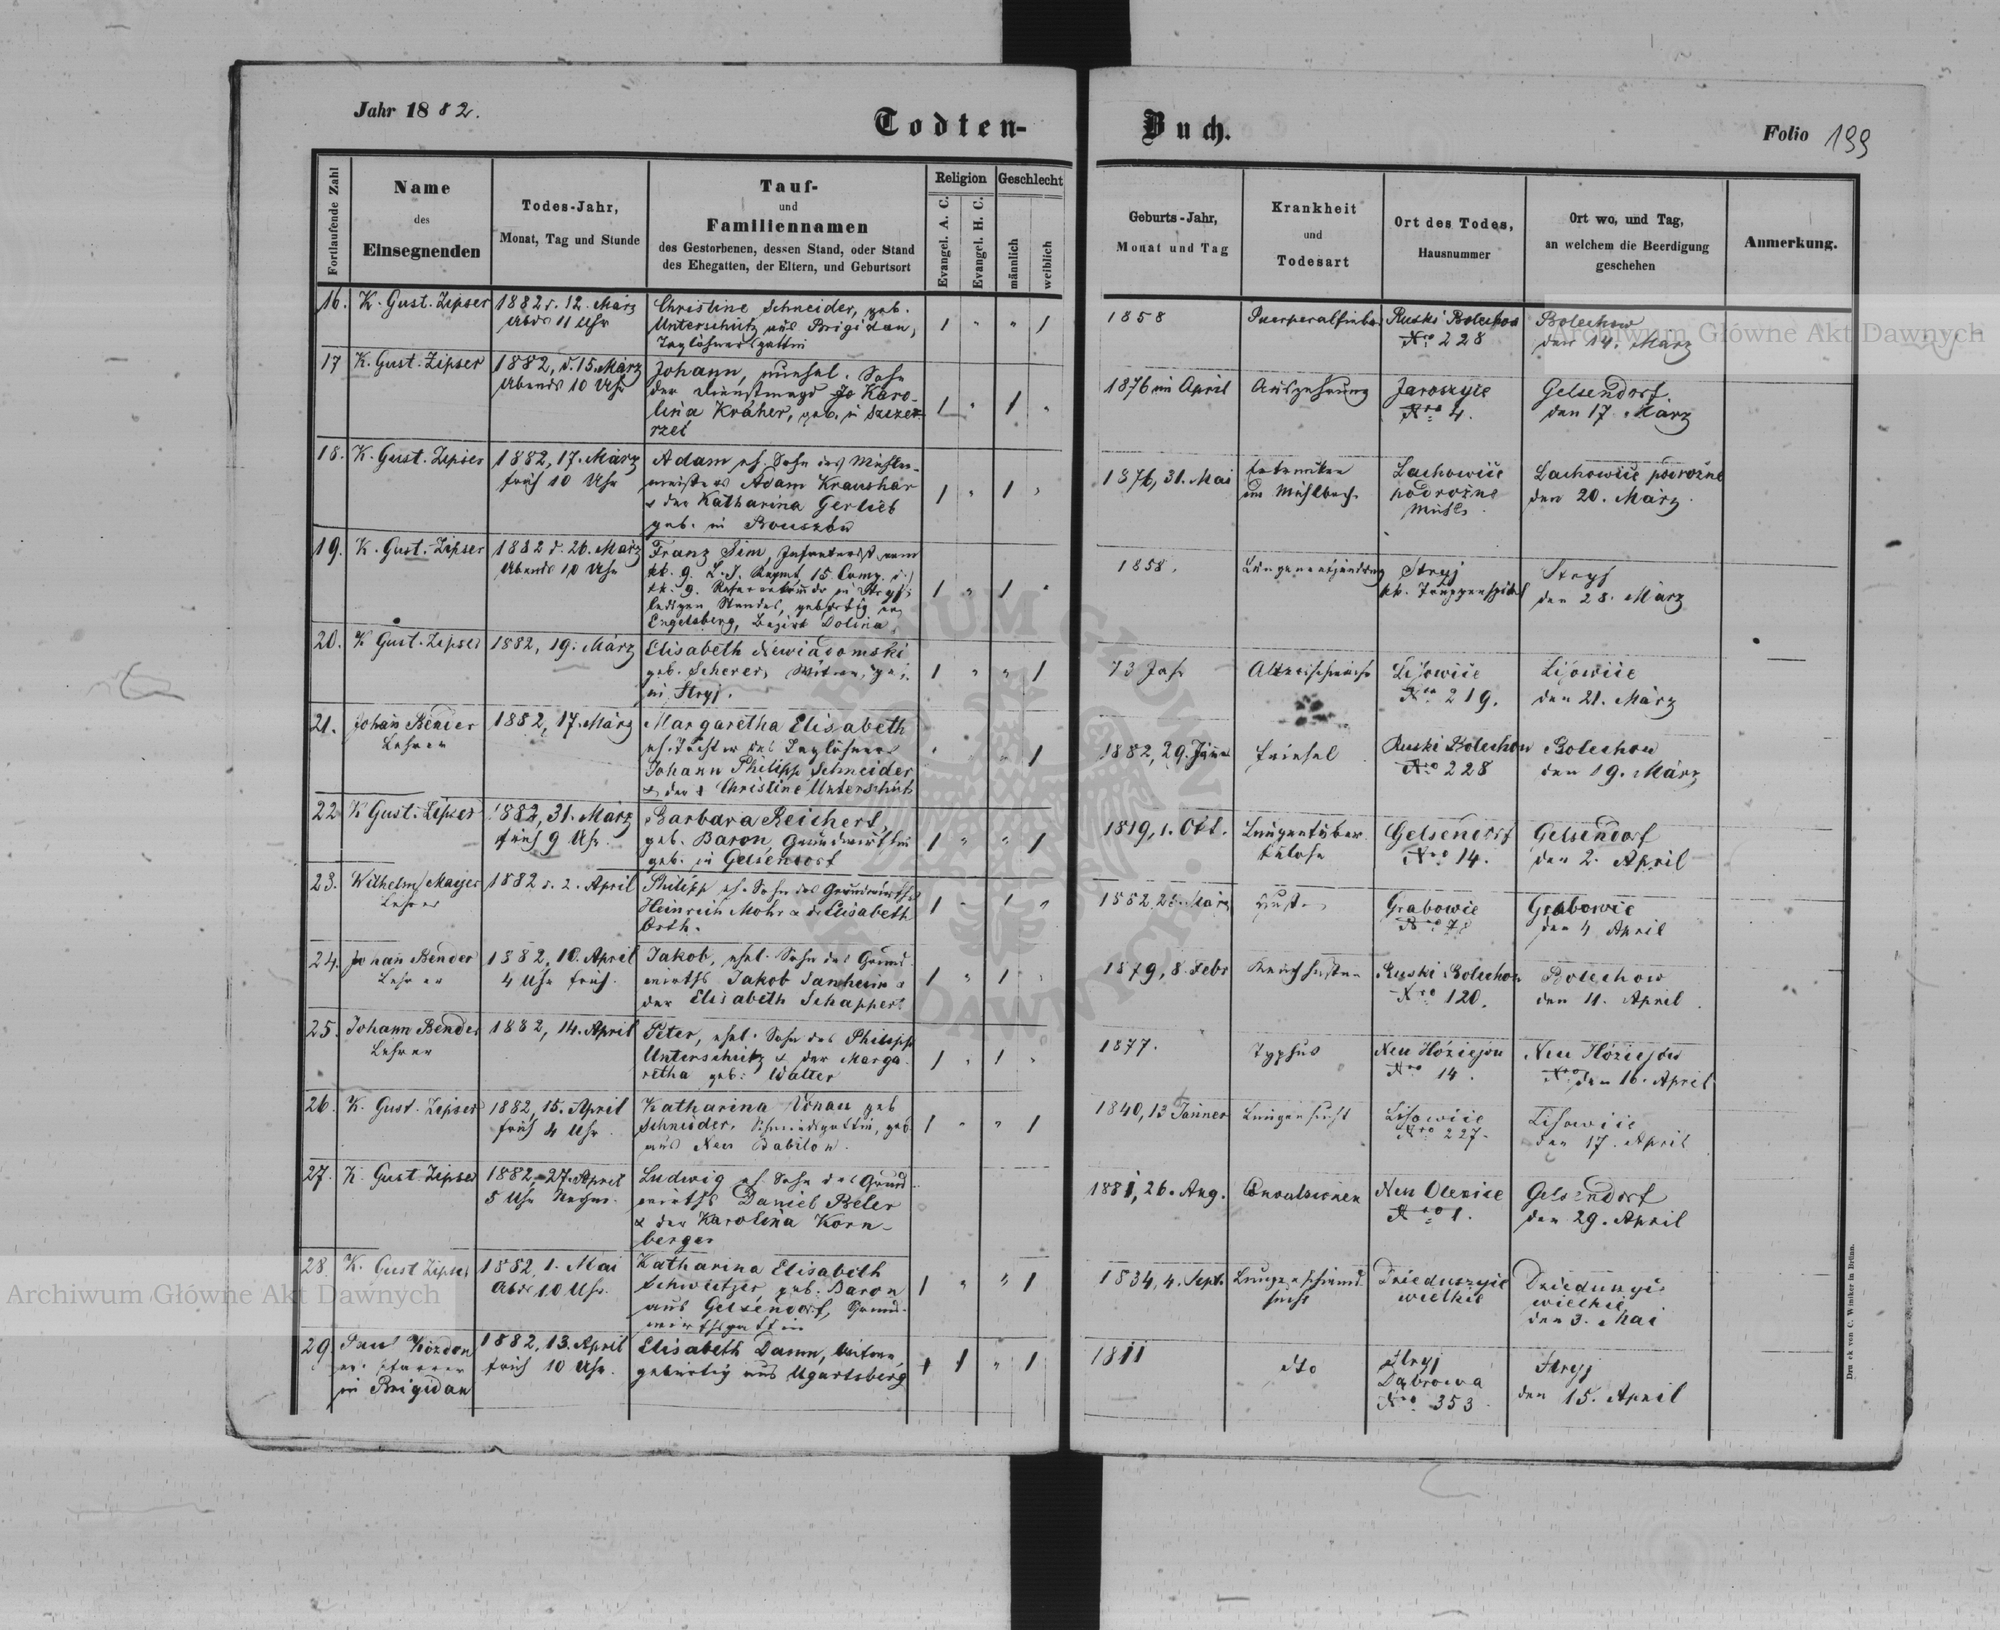 Jahr 1882.
Todten-
Buch.
Folio 199
Fortlaufende Zahl
Name
des
Einsegnenden
Todes-Jahr,
Monat, Tag und Stunde
Tauf-
und
Familiennamen
des Gestorbenen, dessen Stand, oder Stand
des Ehegatten, der Eltern, und Geburtsort
Religion
Evangel. A. C.
Evangel. H. C.
Geschlecht
männlich
weiblich
Geburts-Jahr,
Monat und Tag
Krankheit
und
Todesart
Ort des Todes,
Hausnummer
Ort wo, und Tag,
an welchem die Beerdigung
geschehen
Anmerkung.
16. K. Gust. Zipser
1882 d. 12. März
Abds 11 Uhr
Christine Schneider, geb.
Unterschütz aus Brigidau,
Taglöhnersgattin
1 " " 1
1858
Puerperalfieber
Ruski Bolechow
Nro 228
Bolechow
den 14. März
17 K. Gust. Zipser
1882, d. 15. März
Abends 10 Uhr
Johann, unehel. Sohn
der Dienstmagd Jo Karo-
lina Kräher, geb. in
1 " 1 "
1876 im April
Auszehrung
Jaroszyce
Nro 4.
Gelsendorf.
den 17. März
18. K. Gust. Zipser
1882, 17. März
früh 10 Uhr
Adam eh. Sohn des Mühlen-
meisters Adam Kraushar
& der Katharina Gerlieb
geb. in
1 " 1 "
1876, 31. Mai
ertrunken
im Mühlbach
Lachowice
podrożne
Mühle
Lachowice podrożne
den 20. März
19. K. Gust. Zipser
1882 d. 26. März
Abends 10 Uhr
Franz Sim, Infanterist vom
kk. 9. L. I. Regmt, 15 Comp. d.
kk. 9. in Stryj;
ledigen Standes, gebürtig in
Engelsberg, Bezirk Dolina
1 " 1 "
1858.
Lungenentzündung
Stryj
kk. Truppenspital
Stryj
den 28. März
20. K Gust. Zipser
1882, 19. März
Elisabeth Niewiadomski
geb. Scherer, Witwe,
in Stryj.
1 " " 1
73 Jahr
Altersschwäche
Lisowice
Nro 219.
Lisowice
den 21. März
21. Johan Bender
Lehrer
1882, 17. März
Margaretha Elisabeth
eh. Tochter des Taglöhners
Johann Philipp Schneider
& der Christine Unterschütz
1
1882, 29. Jänner
Friesel
Ruski Bolechow
Nro 228
Bolechow
den 19. März
22 K Gust. Zipser
1882, 31. März
früh 9 Uhr
Barbara Reichert,
geb. Baron, Grundwirthin
geb. in Gelsendorf
1 " " 1
1819, 1. Okt.
Lungentuber
kulose
Gelsendorf
Nro 14.
Gelsendorf
den 2. April
23. Wilhelm Mayer
Lehrer
1882 d. 2. April
Philipp eh. Sohn des Grundwirths
Heinrich Mohr & d. Elisabeth
Orth.
1 " 1 "
1882 März
Husten
Grabowce
Nro 78
Grabowce
den 4 April
24. Johan Bender
Lehrer
1882, 10. April
4 Uhr früh.
Jakob, ehel. Sohn des Grund
wirths Jakob Tanheim &
der Elisabeth Schappert
1 " 1 "
1879, 8. Febr
Keuchhusten
Ruski Bolechow
Nro 120.
Bolechow
den 11. April
25. Johann Bender
Lehrer
1882, 14. April
Peter, ehel. Sohn des Philipp
Unterschütz & der Marga
retha geb: Walter
1 " 1 "
1877.
Typhus
Neu
Nro 14.
Neu
Nro den 16. April
26. K. Gust. Zipser
1882, 15. April
früh 4 Uhr
Katharina geb
Schneider, Schmiedsgattin, geb.
aus Neu Babilon.
1 " " 1
1840, 13 Jänner
Lungensucht
Lisowice
Nro 227.
Lisowice
den 17. April
27. K. Gust Zipser
1882, 27. April
5 Uhr Nachm.
Ludwig eh. Sohn des Grund
wirths Daniel Beler
& der Karolina Korn-
berger
1881, 26. Aug.
Convulsionen
Neu Olexice
Nro 1.
Gelsendorf
den 29. April
28. K. Gust Zipser
1882, 1. Mai
Abds 10 Uhr.
Katharina Elisabeth
Schweitzer, geb. Baron
aus Gelsendorf, Grund-
wirthsgattin
1 " " 1
1834, 4. Sept.
Lungenschwind
sucht
Dzieduszyce
wielkie
wielkie,
den 3. Mai
29. Paul Kozdon
ev. Pfarrer
in Brigidau
1882, 13. April
früh 10 Uhr
Elisabeth Damm, Witwe,
gebürtig aus Ugartsberg
1 1 " 1
1811
dto
Stryj
Dąbrowa
Nro 353
Stryj
den 15. April
Druck von C. Winiker in Brünn.
Archiwum Główne Akt Dawnych
Archiwum Główne Akt Dawnych
ARCHIWUM GŁÓWNE AKT DAWNYCH